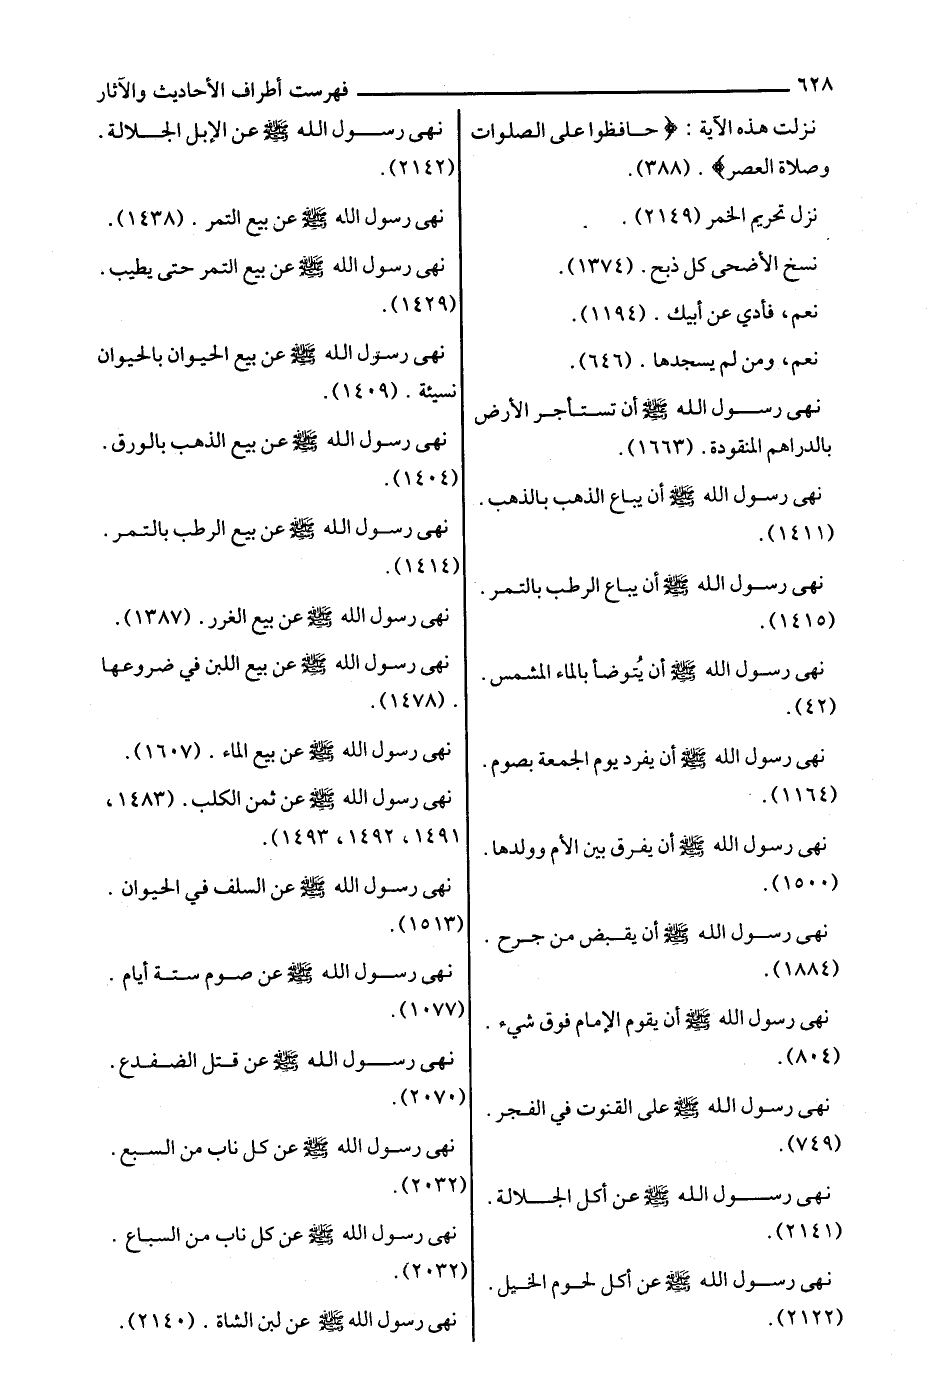 ٦٢٨ فهرست أطراف الأحاديث والآثار
نزلت هذه الآية : ﴿ حافظوا على الصلوات
وصلاة العصر﴾ . (٣٨٨).
نزل تحريم الخمر (٢١٤٩) .
نسخ الأضحى كل ذبح . (١٣٧٤).
نعم، فأدي عن أبيك . (١١٩٤).
نعم، ومن لم يسجدها . (٦٤٦).
نهى رسول الله ﷺ أن تستأجر الأرض
بالدراهم المنقودة . (١٦٦٣).
نهى رسول الله ﷺ أن يباع الذهب بالذهب .
(١٤١١).
نهى رسول الله ﷺ أن يباع الرطب بالتمر .
(١٤١٥).
نهى رسول الله ﷺ أن يُتوضأ بالماء المشمس .
(٤٢).
نهى رسول الله ﷺ أن يفرد يوم الجمعة بصوم .
(١١٦٤).
نهى رسول الله ﷺ أن يفرق بين الأم وولدها .
(١٥٠٠).
نهى رسول الله ﷺ أن يقبض من جرح .
(١٨٨٤).
نهى رسول الله ﷺ أن يقوم الإمام فوق شيء .
(٨٠٤).
نهى رسول الله ﷺ على القنوت في الفجر .
(٧٤٩).
نهى رسول الله ﷺ عن أكل الجلالة .
(٢١٤١).
نهى رسول الله ﷺ عن أكل لحوم الخيل .
(٢١٢٢).
نهى رسول الله ﷺ عن الإبل الجلالة .
(٢١٤٢).
نهى رسول الله ﷺ عن بيع التمر . (١٤٣٨).
نهى رسول الله ﷺ عن بيع التمر حتى يطيب .
(١٤٢٩).
نهى رسول الله ﷺ عن بيع الحيوان بالحيوان
نسيئة . (١٤٠٩).
نهى رسول الله ﷺ عن بيع الذهب بالورق .
(١٤٠٤).
نهى رسول الله ﷺ عن بيع الرطب بالتمر .
(١٤١٤).
نهى رسول الله ﷺ عن بيع الغرر . (١٣٨٧).
نهى رسول الله ﷺ عن بيع اللبن في ضروعها
. (١٤٧٨).
نهى رسول الله ﷺ عن بيع الماء . (١٦٠٧).
نهى رسول الله ﷺ عن ثمن الكلب . (١٤٨٣،
١٤٩١، ١٤٩٢، ١٤٩٣).
نهى رسول الله ﷺ عن السلف في الحيوان .
(١٥١٣).
نهى رسول الله ﷺ عن صوم ستة أيام .
(١٠٧٧).
نهى رسول الله ﷺ عن قتل الضفدع .
(٢٠٧٠).
نهى رسول الله ﷺ عن كل ناب من السبع .
(٢٠٣٢).
نهى رسول الله ﷺ عن كل ناب من السباع .
(٢٠٣٢).
نهى رسول الله ﷺ عن لبن الشاة . (٢١٤٠).